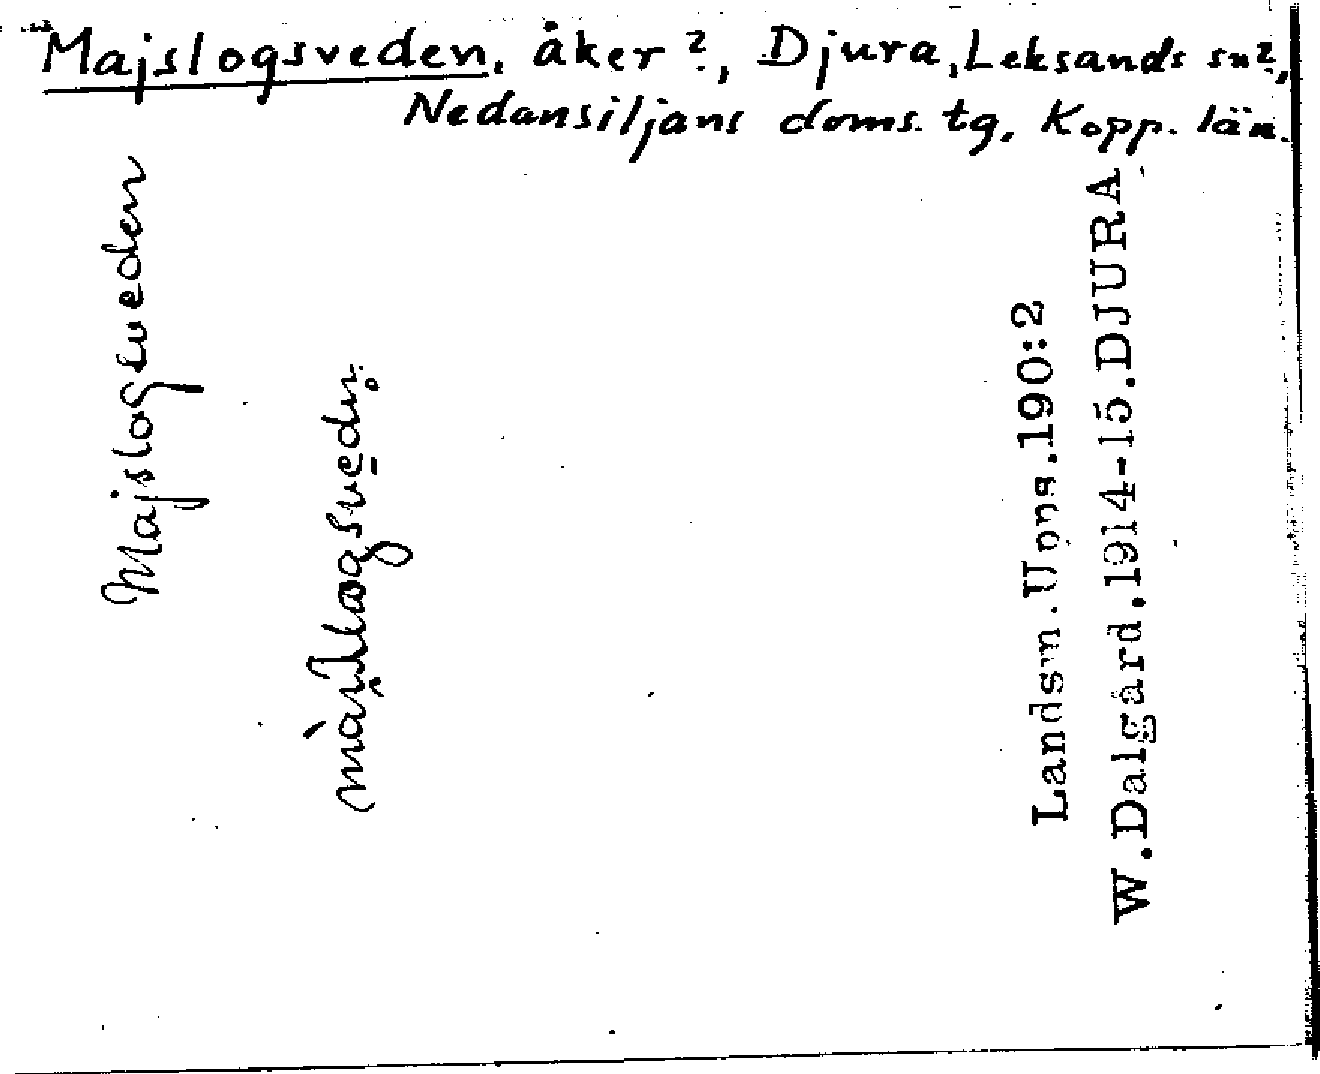 Majslogsveden, åker?, Djura, Leksands sn?,
Nedansiljans doms. tg, Kopp. län.
Majslogsveden
Landsm.Upps.190:2
W.Dalgård.1914-15.DJURA